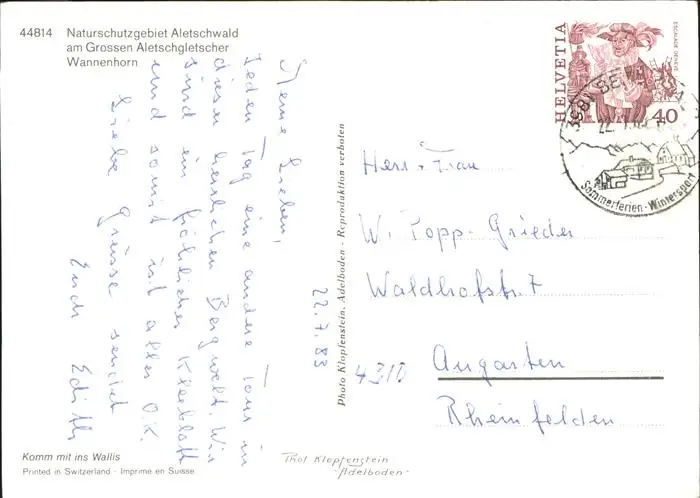 44814 Naturschutzgebiet Aletschwald
am Grossen Aletschgletscher
Wannenhorn
Meine Lieben,
jeden Tag eine andere Tour in
dieser herrlichen Bergwelt. Wir
sind ein fröhliches Kleeblatt
und somit ist alles O.K.
Liebe Grüsse sendet
Euch Edith
22.7.83
Komm mit ins Wallis
Printed in Switzerland - Imprimé en Suisse
Photo Klopfenstein, Adelboden - Reproduktion verboten
Phot Klopfenstein
-Adelboden-
HELVETIA
ESCALADE GENÈVE
40
3981
Sommerferien - Wintersport
Herr + Frau
W. Popp-Grieder
Waldhofstr. 7
4310 Augarten
Rheinfelden